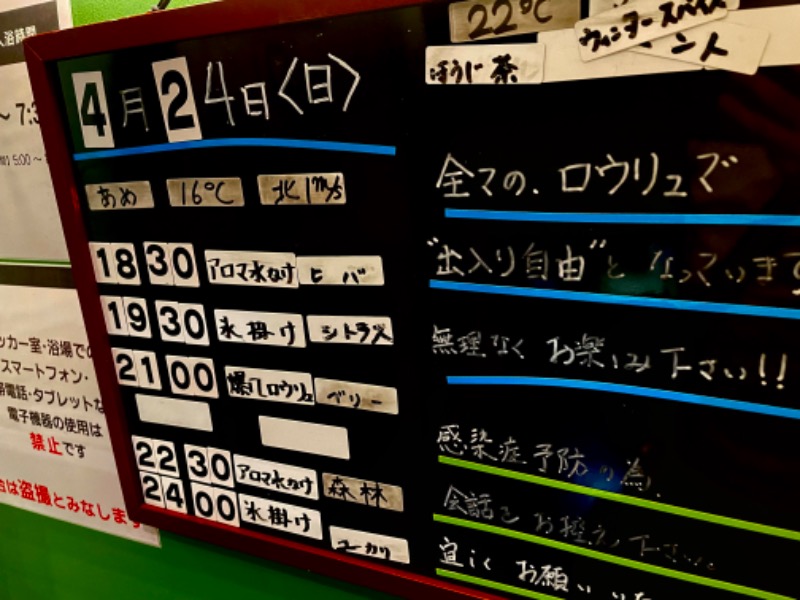 入浴時間
～7:3
5:00～
ッカー室・浴場での
スマートフォン・
帯電話・タブレットな
電子機器の使用は
禁止です
合は盗撮とみなします
4月24日〈日〉
あめ 16℃ 北1m/s
18 30 アロマ水かけ ヒバ
19 30 氷掛け シトラス
21 00 爆風ロウリュ ベリー
22 30 アロマ水かけ 森林
24 00 氷掛け ユーカリ
22℃
ほうじ茶
ウィンタースパイス
ン人
全ての、ロウリュで
"出入り自由"となっています
無理なくお楽しみ下さい!!
感染症予防の為、
会話をお控え下さい。
宜しくお願い